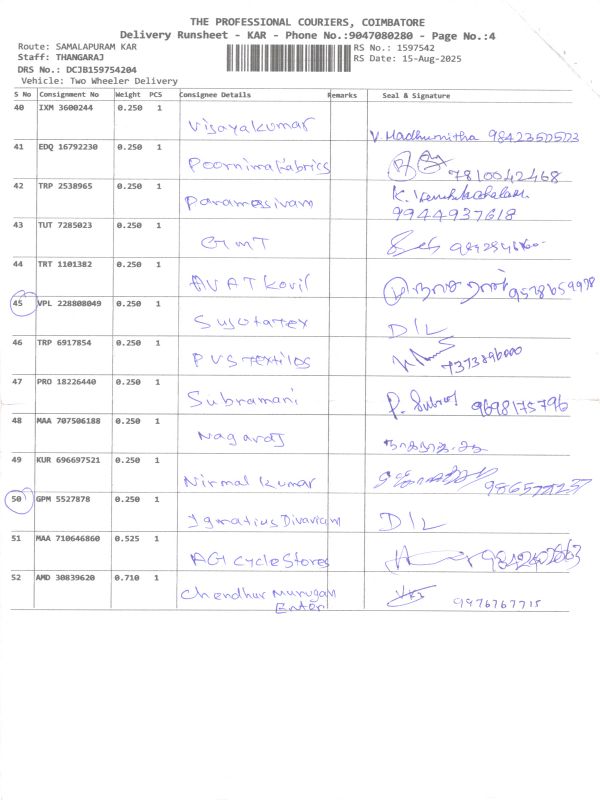 THE PROFESSIONAL COURIERS, COIMBATORE
Delivery Runsheet - KAR - Phone No.:9047080280 - Page No.:4
Route: SAMALAPURAM KAR RS No.: 1597542
Staff: THANGARAJ RS Date: 15-Aug-2025
DRS No.: DCJB159754204
Vehicle: Two Wheeler Delivery
S No Consignment No Weight PCS Consignee Details Remarks Seal & Signature
40 IXM 3600244 0.250 1
Vijayakumar V. Madhumitha
41 EDQ 16792230 0.250 1
Poornima Fabrics 7810042468
42 TRP 2538965 0.250 1 K. Venkatachalam
Paramasivam 9944937618
43 TUT 7285023 0.250 1
GTMT
44 TRT 1101382 0.250 1
AVAT Kovil
45 VPL 228808049 0.250 1
Sujotatex D/L
46 TRP 6917854 0.250 1
PVS Textilos 7373896000
47 PRO 18226440 0.250 1
Subramani P. 9698175796
48 MAA 707506188 0.250 1
Nagaraj
49 KUR 696697521 0.250 1
Nirmal Kumar
50 GPM 5527878 0.250 1
Ignatius D/L
51 MAA 710646860 0.525 1
AG Cycle Stores
52 AMD 30839620 0.710 1
Chendhur Murugan 9976767715
Enter